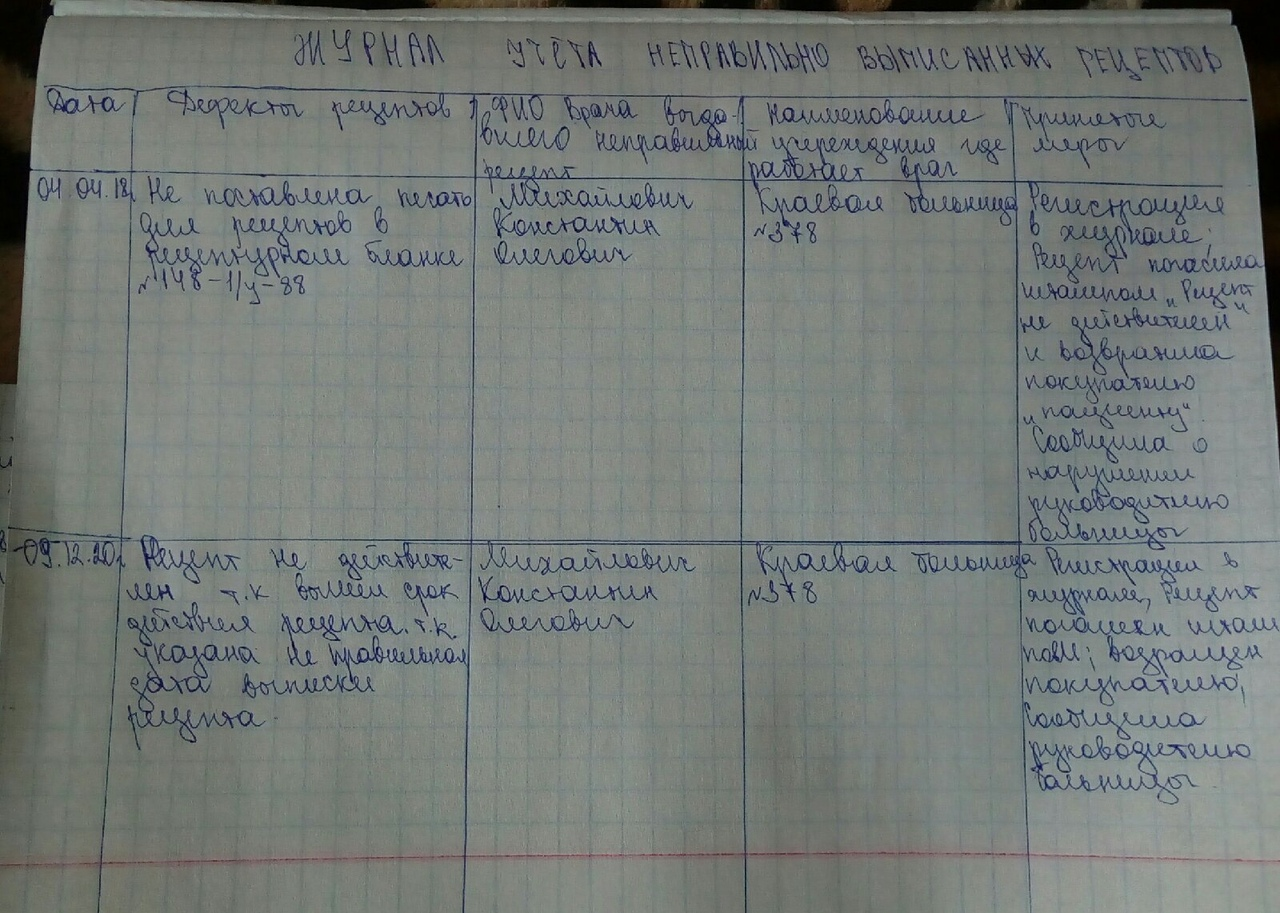 ЖУРНАЛ УЧЁТА НЕПРАВИЛЬНО ВЫПИСАННЫХ РЕЦЕПТОВ
Дата
Дефекты рецептов
ФИО Врача выда-
вшего неправильный
рецепт
Наименование
учереждения где
работает врач
Принятые
меры
04.04.18
Не поставлена печать
для рецептов в
рецептурном бланке
№148-1/у-88
Михайлович
Константин
Олегович
Краевая больница
№378
Регистрация
в журнале;
Рецепт погасила
штампом „Рецепт
не действителен"
и возвратила
покупателю
„пациенту".
Сообщила о
нарушении
руководителю
больницы
09.12.20г
Рецепт не действите-
лен т.к вышел срок
действия рецепта. т.к.
указана не правильная
дата выписки
рецепта.
Михайлович
Константин
Олегович
Краевая больница
№378
Регистрация в
журнале, Рецепт
погашен штам
пом; возращен
покупателю;
Сообщила
руководителю
больницы.